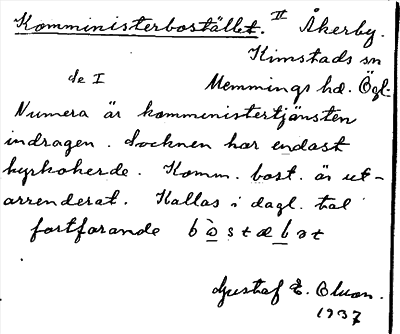 Komministerbostället. II Åkerby.
Kimstads sn
se I Memmings hd. Ögl.
Numera är komministertjänsten
indragen. Socknen har endast
kyrkoherde. Komm. bost. är ut-
arrenderat. Kallas i dagl. tal
fortfarande bòstæbət
Gustaf E.
1937